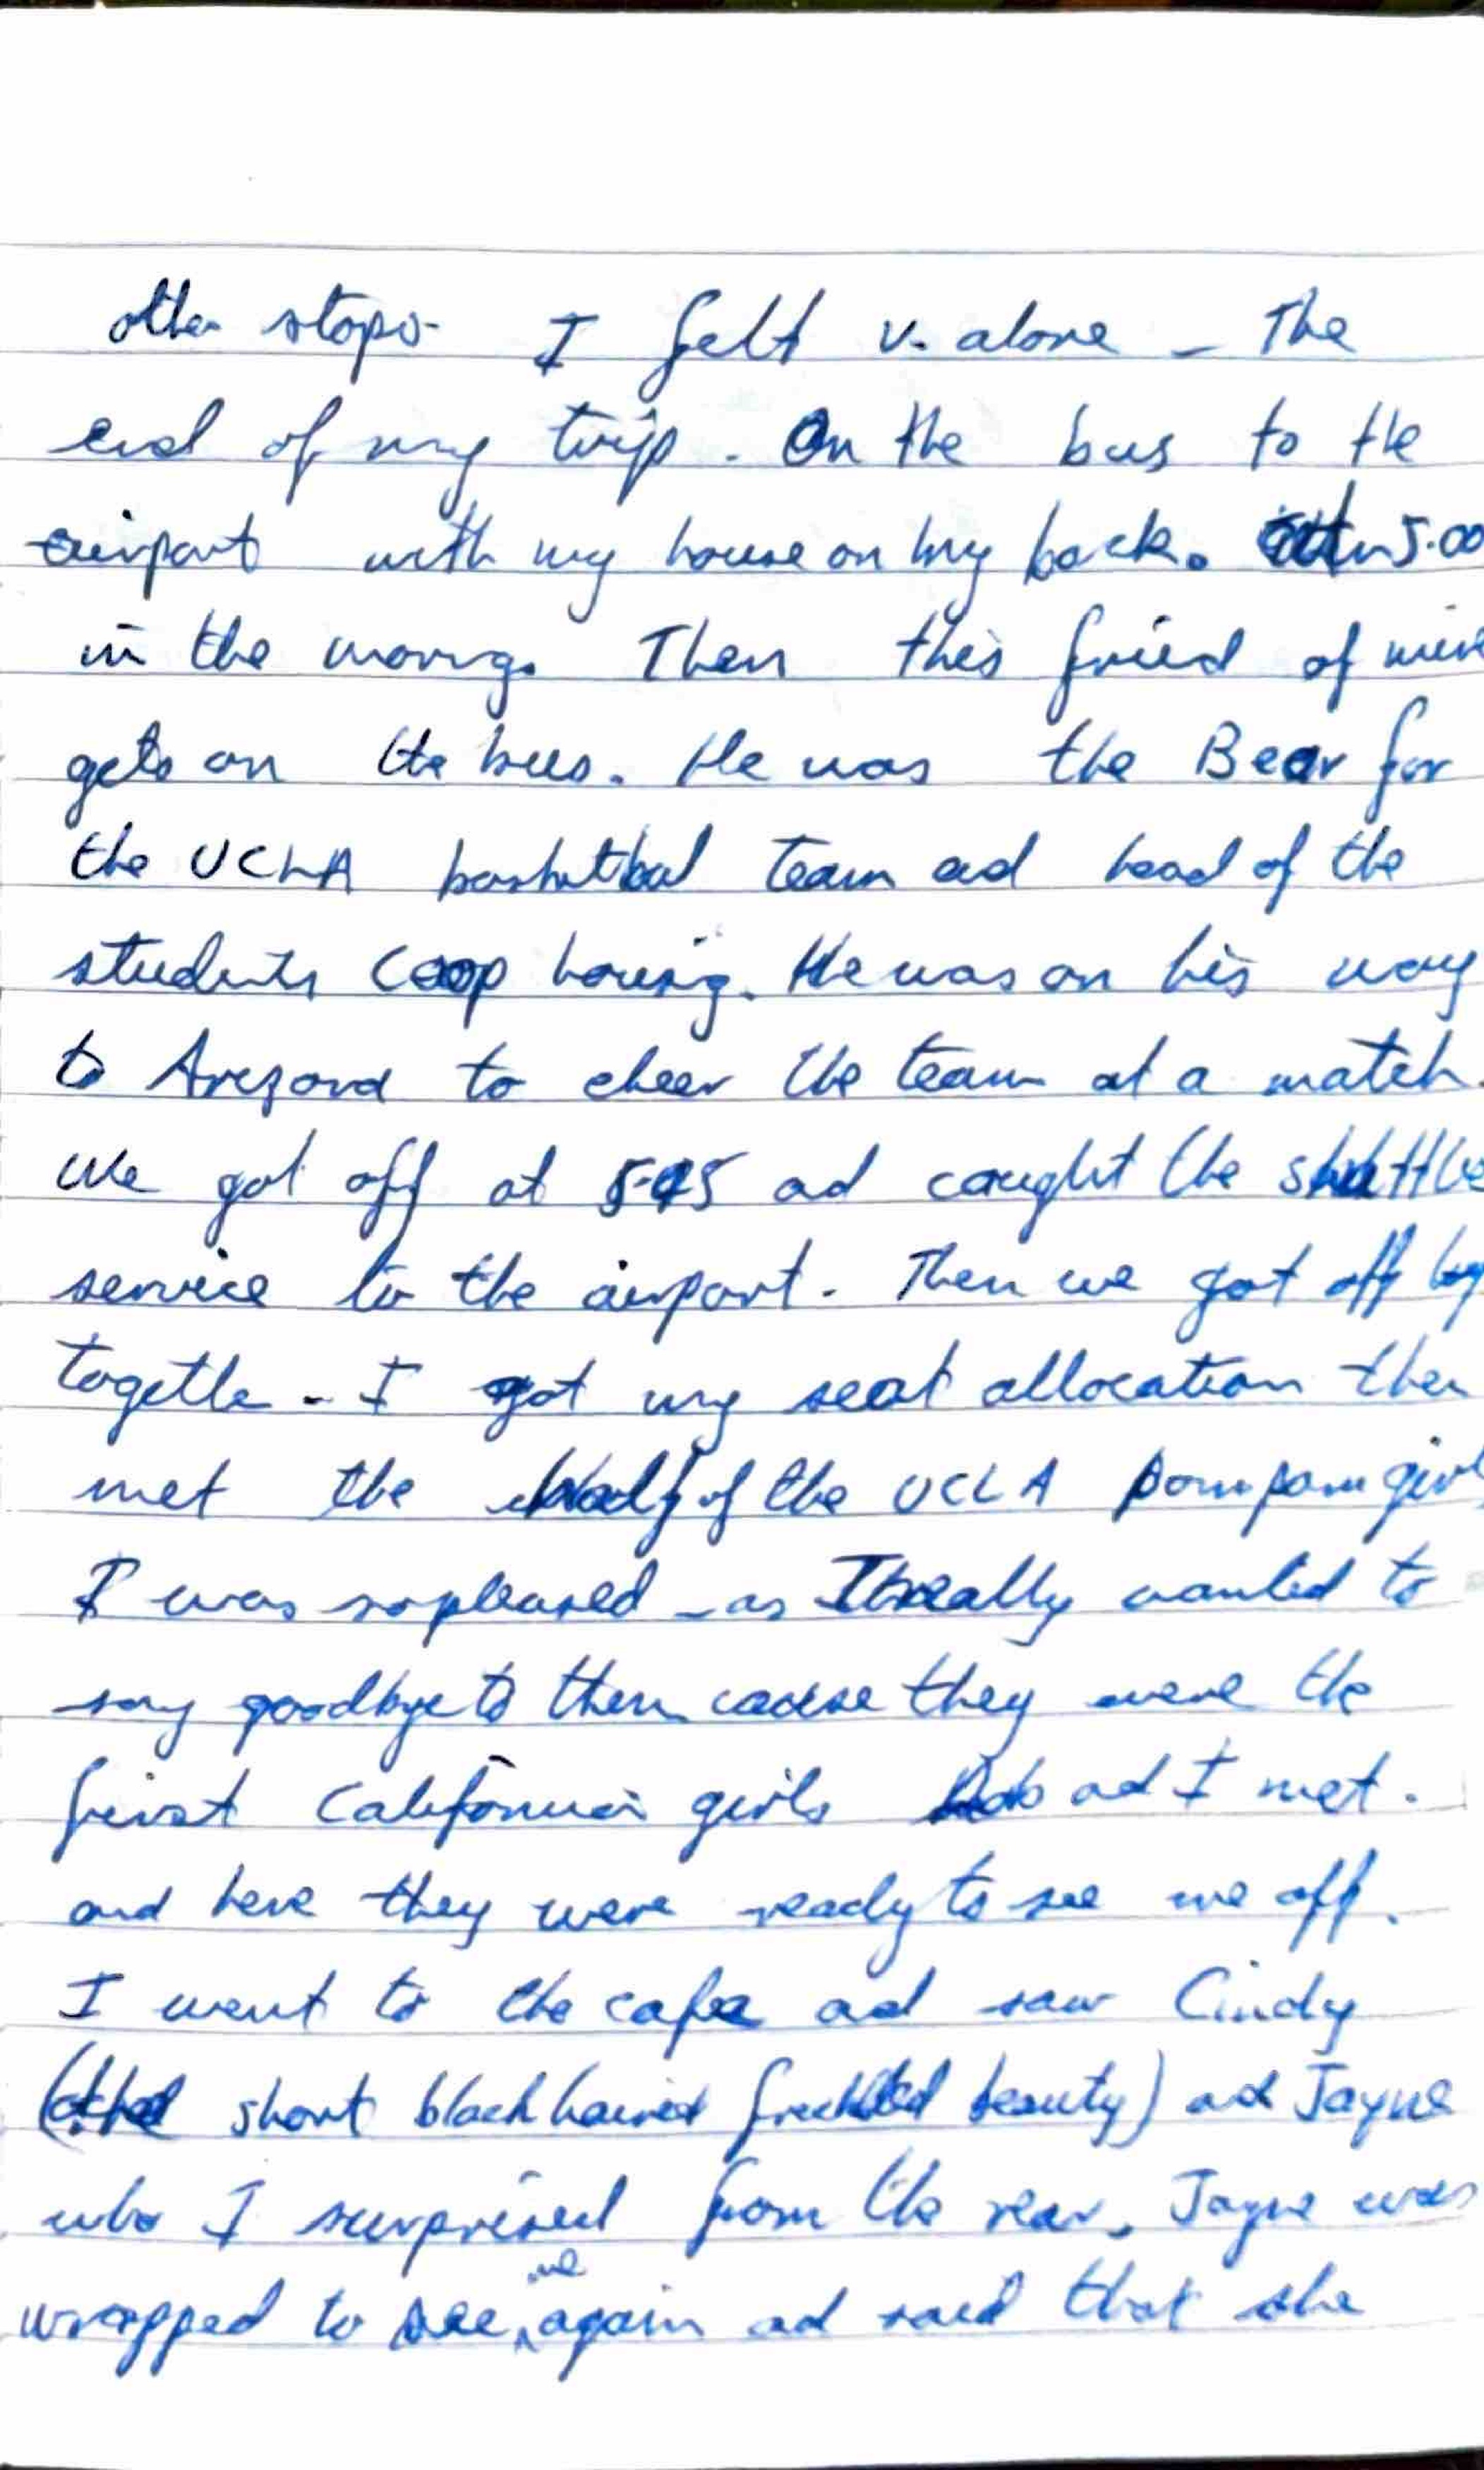 other stops. I felt v. alone - The
end of my trip. On the bus to the
airport with my house on my back. 5.00
in the morng. Then this friend of mine
gets on the bus. He was the Bear for
the UCLA basketball team ad head of the
students Coop housing. He was on his way
to Arezona to cheer the team at a match.
We got off at 5.45 ad caught the shuttle
service to the airport. Then we got off
together. I got my seat allocation then
met the half of the UCLA pompom girl
I was so pleased - as I really wanted to
say goodbye to them cause they were the
first California girls ad I met.
and here they were ready to see me off.
I went to the cafe ad saw Cindy
(the short black haired freckled beauty) ad Jayne
who I surprised from the rear. Jayne was
wrapped to see me again ad said that she